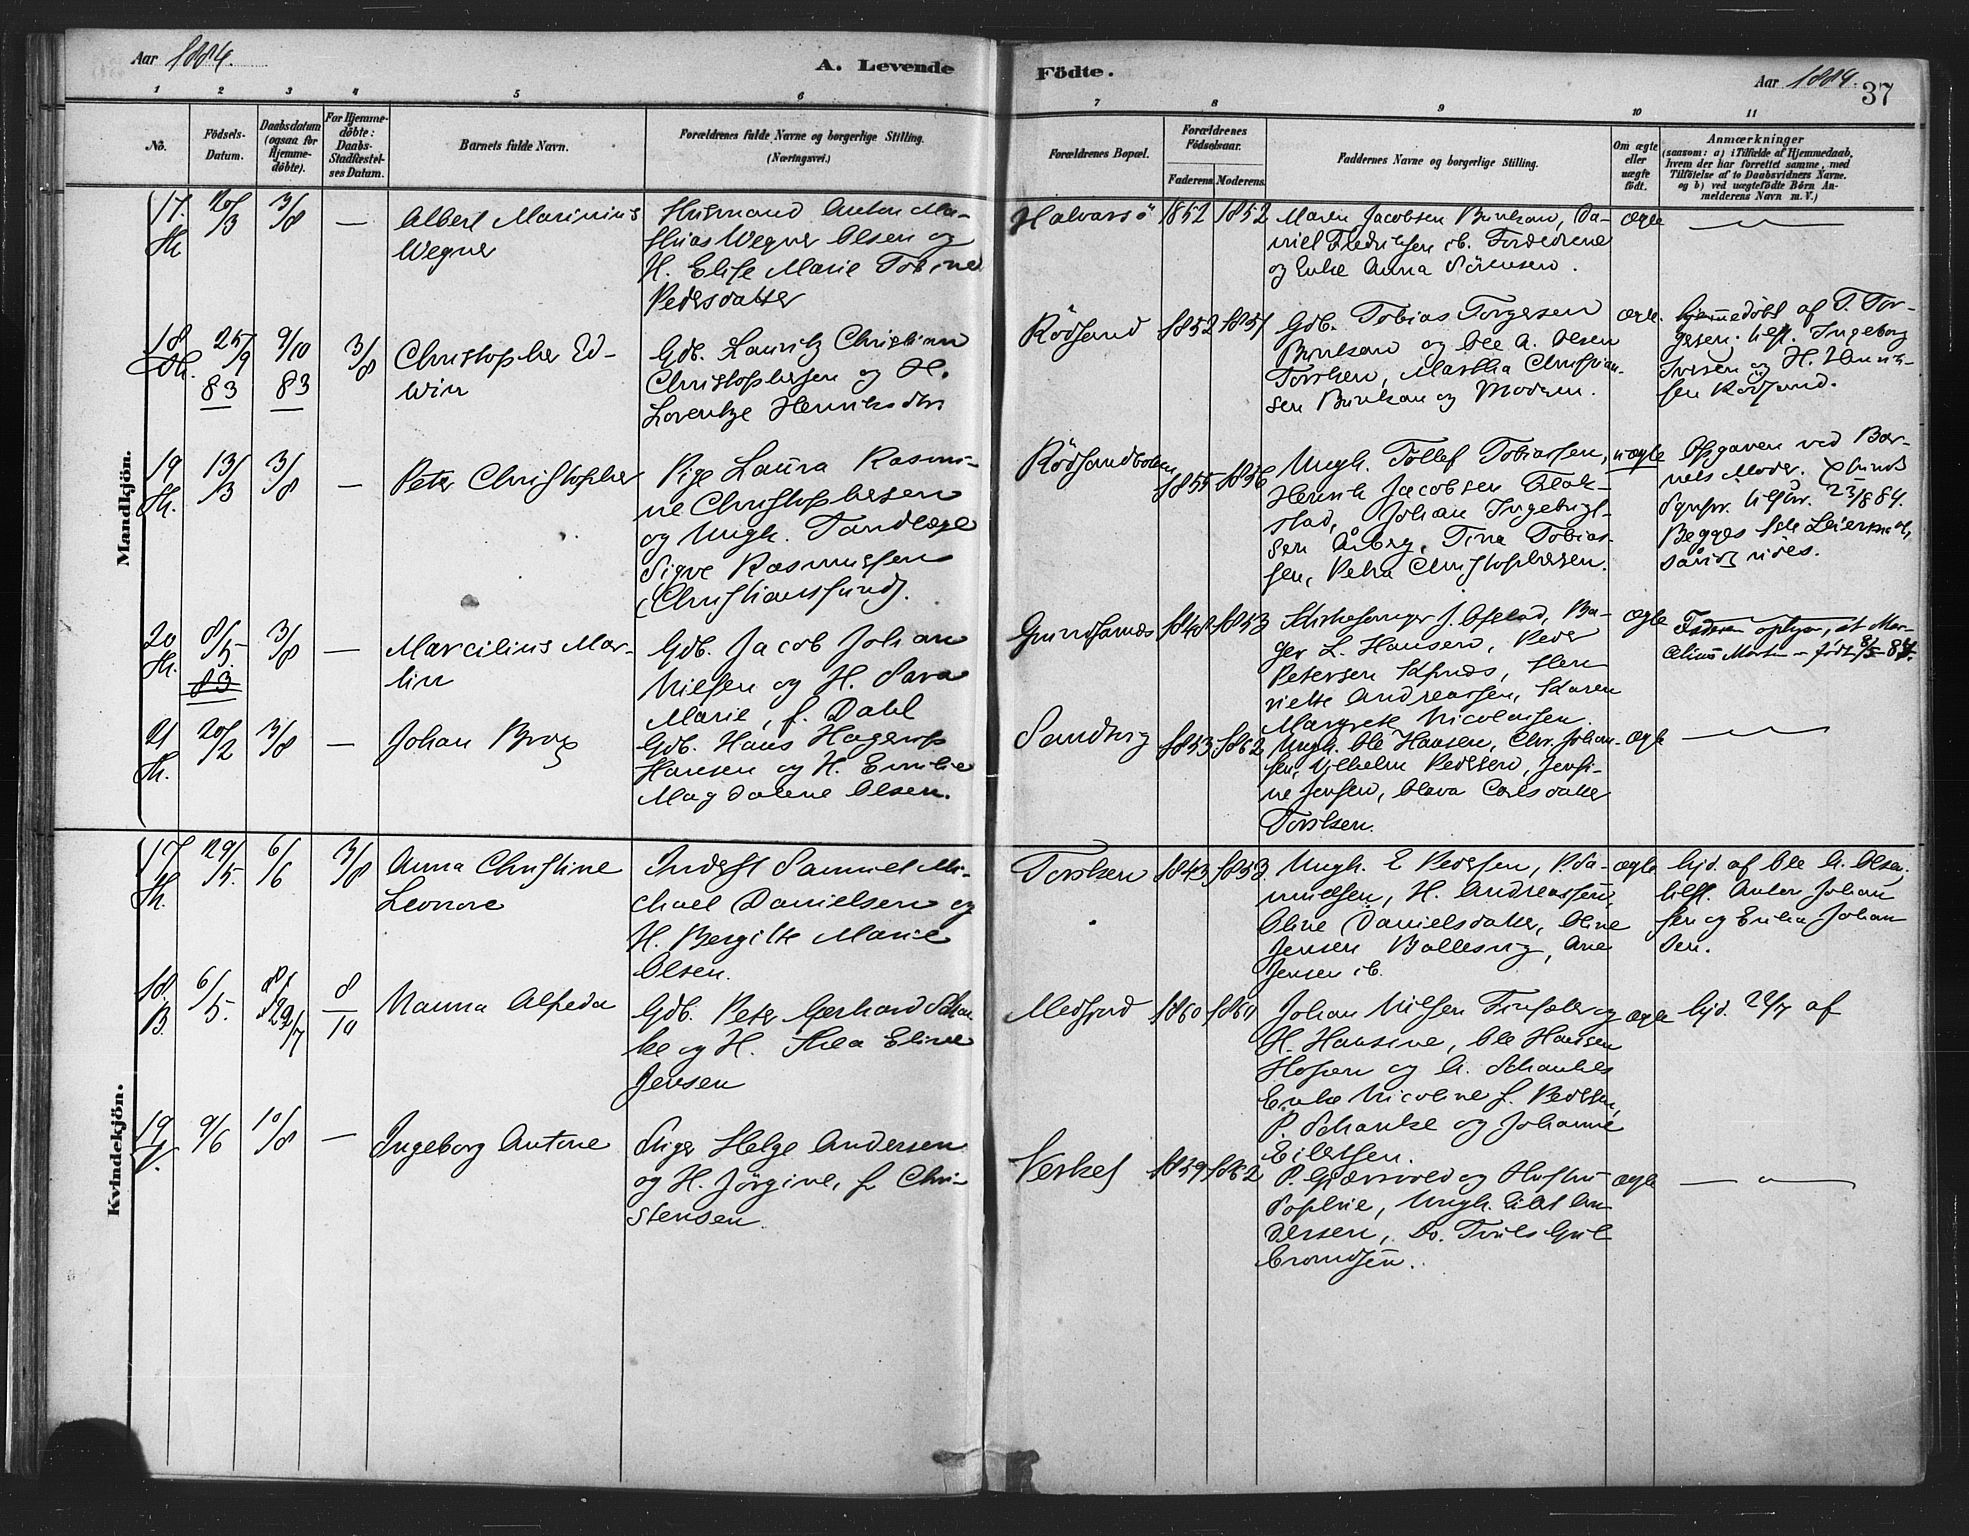 Aar 1884.
A. Levende
Födte.
Aar 1884.
37
1 2 3 4 5 6 7 8 9 10 11
No.
Födsels-
Datum.
Daabsdatum
(ogsaa for
Hjemme-
döbte).
For Hjemme-
döbte:
Daabs-
Stadfæstel-
ses Datum.
Barnets fulde Navn.
Forældrenes fulde Navne og borgerlige Stilling.
(Næringsvei.)
Forældrenes Bopæl.
Forældrenes
Födselsaar.
Faderens.
Moderens.
Faddernes Navne og borgerlige Stilling.
Om ægte
eller
uægte
født.
Anmærkninger
(saasom: a) i Tilfælde af Hjemmedaab,
hvem der har forrettet samme, med
Tilföielse af to Daabsvidners Navne.
og b) ved uægtefödte Börn An-
melderens Navn m. V.)
Mandkjön.
17.
Th.
20/3
3/8
—
Albert Marinius
Wegner
Husmand Anton Ma-
thias Wegner Olsen og
H. Elise Marie Tobine
Pedersdatter
Halvarsö
1852
1852
Maren Jacobsen Burkan, Da-
niel Fredriksen ib. Forældrene
og Enke Anna Sörensen.
ægte
18
Th.
25/9
83
9/10
83
3/8
Christopher Ed-
win
Gdb. Lauritz Christian
Christophersen og H.
Lorentze Henriksdtr
Rödsand
1852
1851
Gdb. Tobias Torgersen
Burkan og Ole A. Olsen
Torsken, Martha Christian-
sen Burkan og Moderen.
ægte.
hjemmedöbt af T. Tor-
gersen. tilst. Ingeborg
Iversen og H. Henrik-
sen Rödsand.
19
Th.
13/3
3/8
—
Peter Christopher
Pige Laura Rasmi-
ne Christophersen
og Ungk. Tandlæge
Sigve Rasmussen
(Christianssund).
Rödsandbotn
1855
1856
Ungk. Tollef Tobiassen,
Henrik Jacobsen Flak-
stad, Johan Ingebrigt-
sen Årberg, Tina Tobias-
sen, Petra Christophersen.
uægte
Opgaven ved Bar-
nets Moder.
23/8 84.
Begges 1ste Leiermaal,
såvidt vides.
20
Th.
8/5
83
3/8
—
Marcilius Mar-
tin
Gdb. Jacob Johan
Nilsen og H. Sara
Marie, f. Dahl
Grundfarnæs
1848
1853
Kirkesanger J. Opstad, Ba-
ger L. Hansen, Peder
Petersen Kapnæs, Hen
riette Andreassen, Karen
Margrete Nicolaisen.
ægte
Faderen oplyser, at Mar-
celius Martin – födt 8/5 84.
21
Th.
20/2
3/8
—
Johan Brox
Gdb. Hans Hagerup
Hansen og H. Emilie
Magdalene Olsen.
Sandvig
1853
1862
Ungk. Ole Hansen, Chr. Johan-
sen, Vilhelm Pedersen, Jensi-
ne Jensen, Olava Carlsdatter
Torsken.
ægte
Kvindekjön.
17
Th.
29/5.
6/6
3/8
Anna Christine
Leonore
Inderst Samuel Mi-
chael Danielsen og
H. Bergitte Marie
Olsen.
Torsken
1843
1853
Ungk. E Pedersen, P. Sa-
muelsen, H. Andreassen,
Oline Danielsdatter, Oline
Jensen Ballesvig, Ane
Jensen ib.
ægte
hjd. af Ole A. Olsen,
tilst. Anton Johan
sen og Erika Johan
sen.
18.
B.
6/5.
29/7
8/10
Nanna Alfreda
Gdb. Peter Gerhard Schan
ke og H. Thea Eline
Jensen
Medfjord
1860
1860
Johan Nilsen Finsæter og
H. Hansine, Ole Hansen
Hopen og A. Schankes
Enke Nicoline f. Pedersen,
P. Schanke og Johanne
Eilertsen.
ægte
hjd. 29/7 af
19
9/6
10/8
—
Ingeborg Antone
Stiger Helge Andersen
og H. Jörgine, f. Chri-
stensen.
Verket
1859
1862
P. Gjærsvold og Hustru
Sophie, Ungk. Eilert An
dersen, Do. Truls Gul
brandsen.
ægte